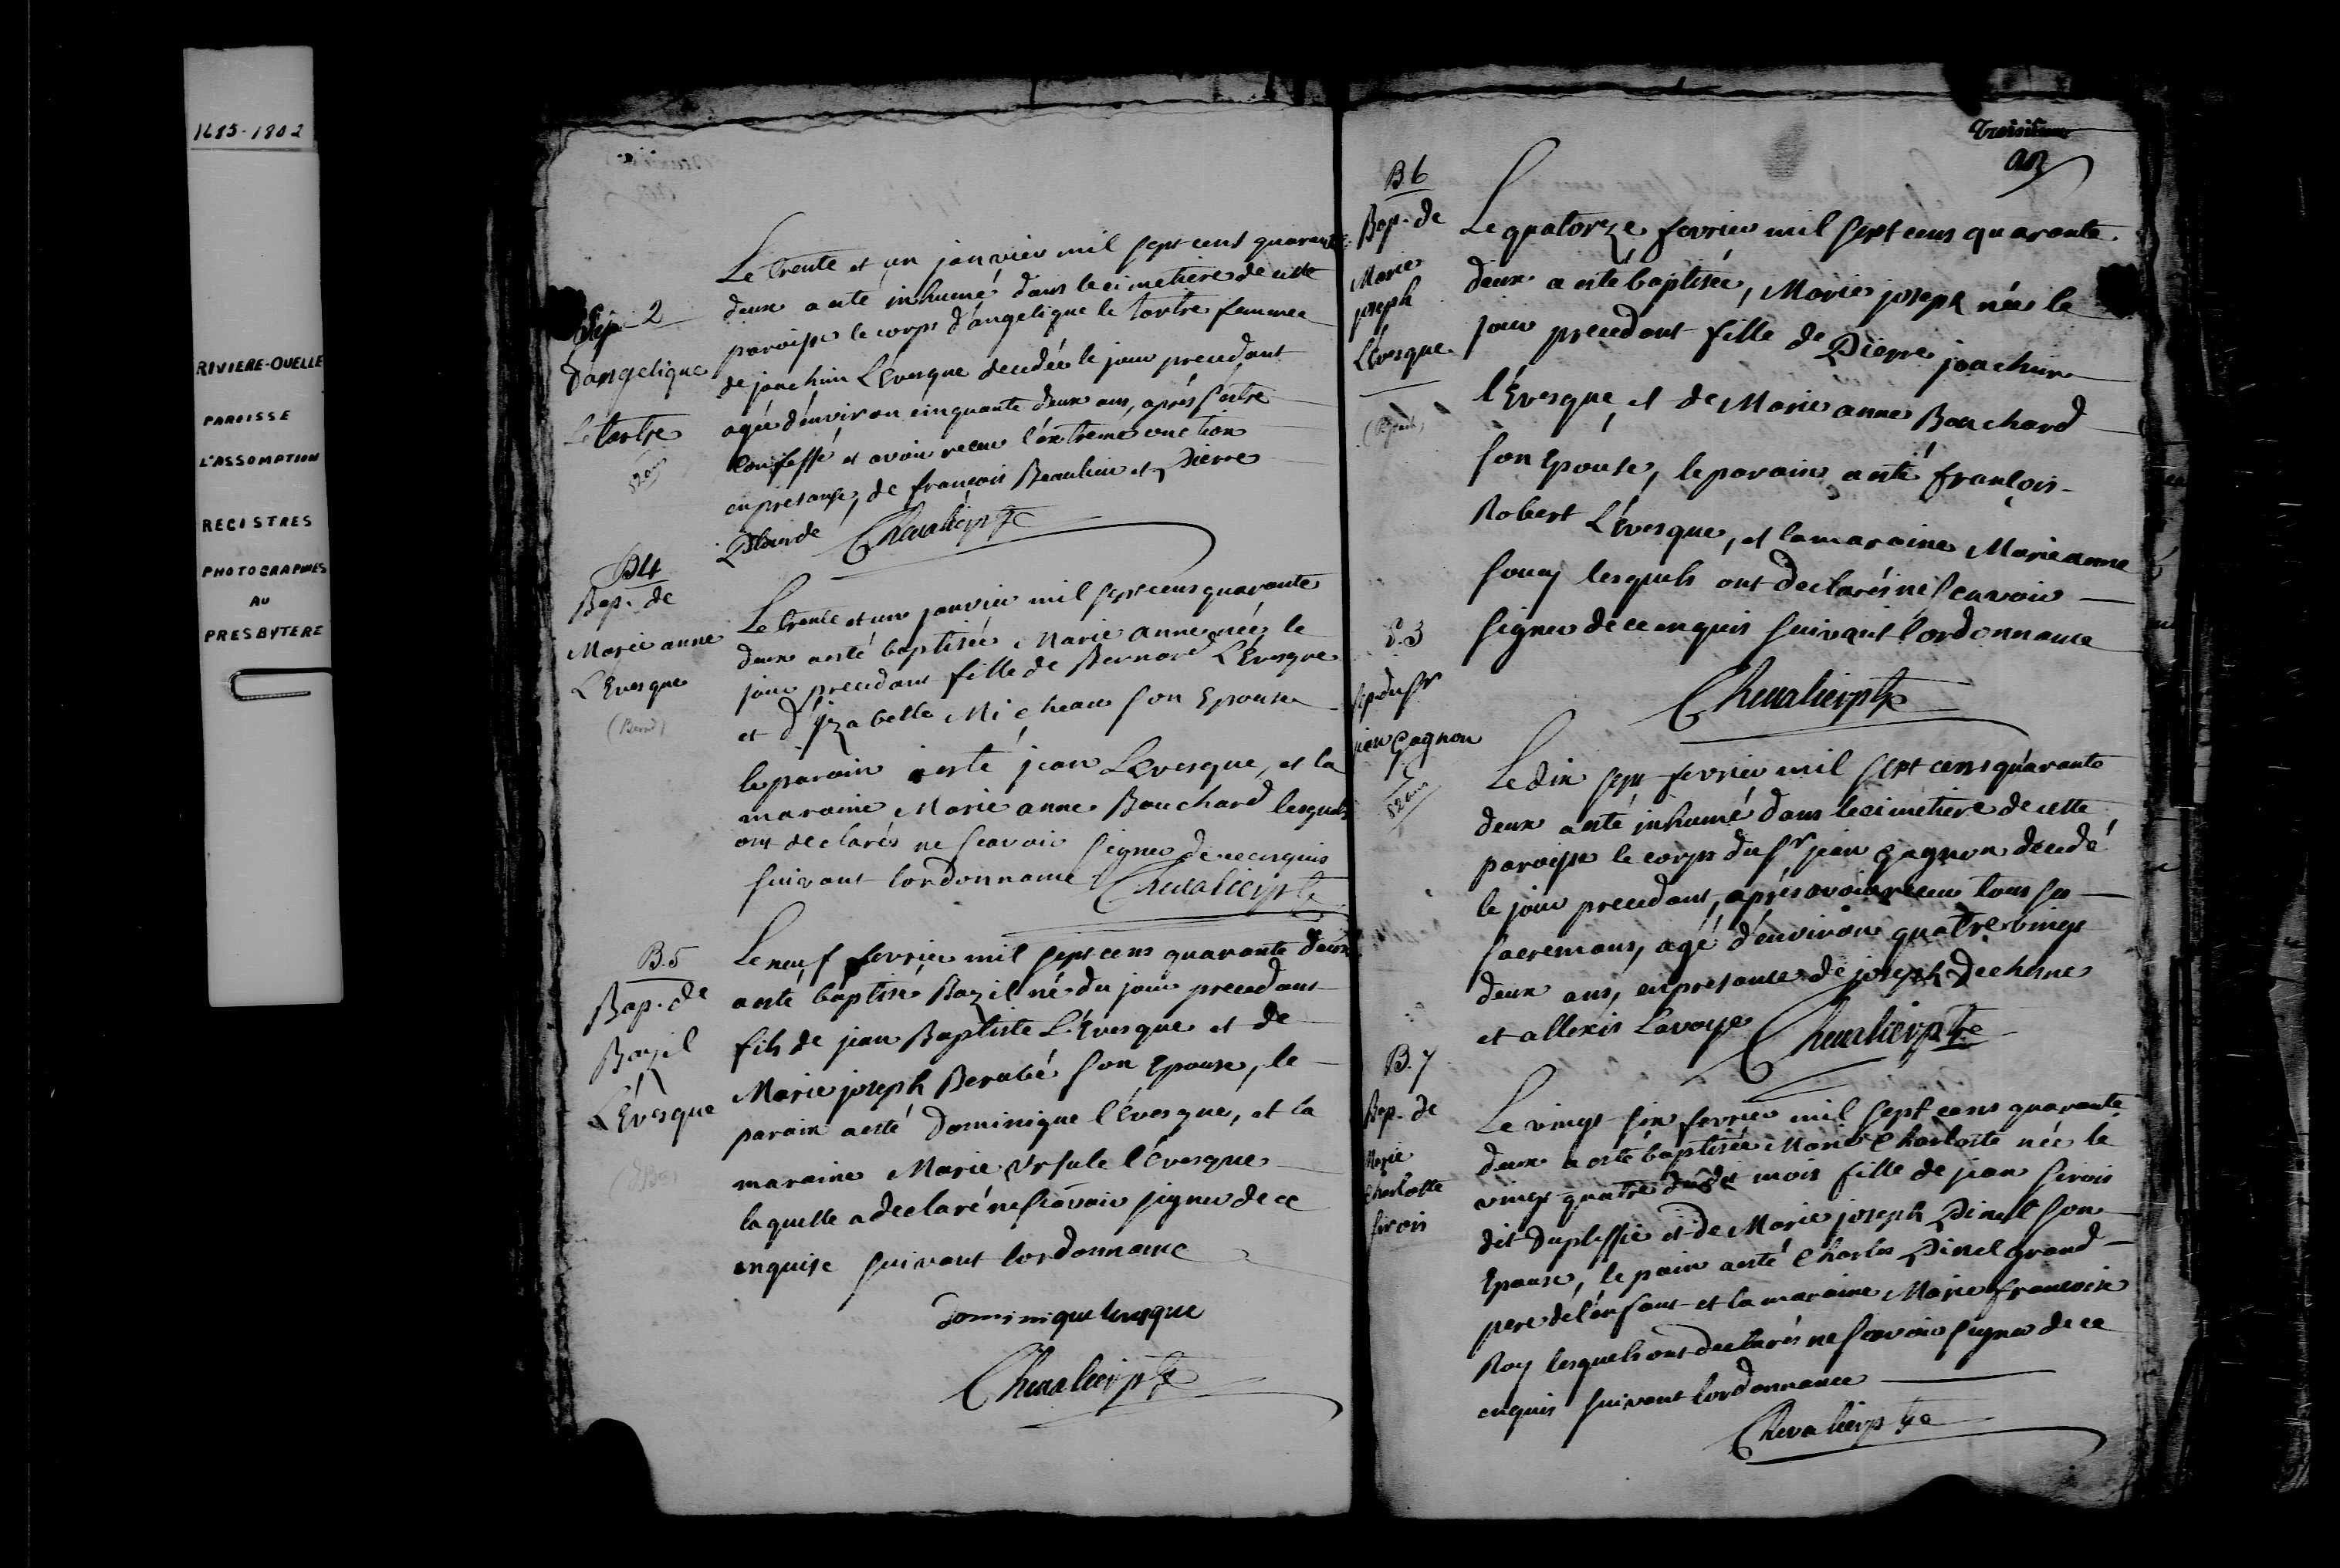 1685-1802
RIVIERE-OUELLE
PAROISSE
L'ASSOMPTION
REGISTRES
PHOTOGRAPHIES
AU
PRESBYTERE
2
d'angelique
Letartre
52 ans
Le trente et un janvier mil sept cens quarante
deux a esté inhumé dans le cimetiere de cette
paroisse le corps d'angelique le tartre femme
de joachim L'Evesque decedée le jour precedant
agée d'environ cinquante deux ans, aprés s'estre
confessé et avoir receu l'extreme onction
en presance, de françois Beaulieu et Pierre
Plourde Chevalier ptre
B4
Bap. de
Marie anne
L'Evesque
(Bern)
Le trente et un janvier mil sept cens quarante
deux a esté baptisée Marie anne née le
jour precedant fille de Bernard L'Evesque
et d'yzabelle Micheau son Epouse
le parain a esté jean Levesque, et la
maraine Marie anne Bouchard lesquels
ont declarés ne scavoir signer de ce enquis
suivant lordonnance Chevalier ptre
B.5
Bap. de
Bazil
L'Evesque
Le neuf fevrier mil sept cens quarante deux
a esté baptisé Bazil né du jour precedant
fils de jean Baptiste L'Evesque et de
Marie joseph Berubé son Epouse, le
parain a esté Dominique l'évesque, et la
maraine Marie Ursule l'évesque
laquelle a declaré ne scavoir signer de ce
enquise suivant lordonnance
Dominique levesque
Chevalier ptre
Troisieme
B.6
Bap. de
Marie
joseph
L'évesque
Le quatorze fevrier mil sept cens quarante
deux a esté baptisée, Marie joseph née le
jour precedant fille de Pierre joachim
l'Evesque, et de Marie anne Bouchard
son Epouse, le parain a esté françois
Robert L'évesque, et la maraine Marie anne
Soucy lesquels ont declarés ne scavoir
signer de ce enquis suivant l'ordonnance
Chevalier ptre
S.3
Sep du Sr
jean Gagnon
82 ans
Le dix sept fevrier mil sept cens quarante
deux a esté inhumé dans le cimetiere de cette
paroisse le corps du Sr jean Gagnon decedé
le jour precedant, aprés avoir receu tous ses
sacremans, agé d'environ quatre vingt
deux ans, en presance de joseph Dechesne
et allexis Lavoye Chevalier ptre
B.7
Bap. de
Marie
Charlotte
Sirois
Le vingt six fevrier mil sept cens quarante
deux a esté baptisée Marie Charlotte née le
vingt quatre du dit mois fille de jean Sirois
dit Duplessie et de Marie joseph Pinel son
Epouse, le parin a esté Charles Pinel grand
pere de l'enfant et la maraine Marie françoise
Roy lesquels ont declarés ne scavoir signer de ce
enquis suivant lordonnance
Chevalier ptre